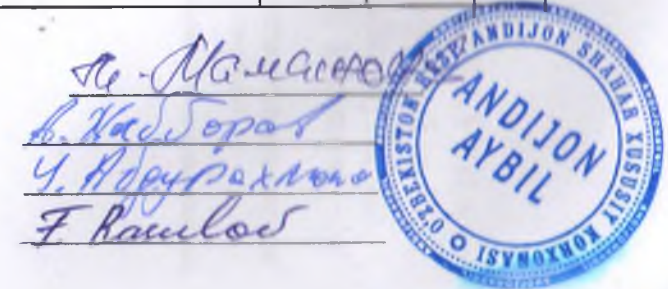 А. Жабборов
У. Абдурахмано
F. Ramilov
O'ZBEKISTON RESP. ANDIJON SHAHAR XUSUSIY KORXONASI
ANDIJON
AYBIL